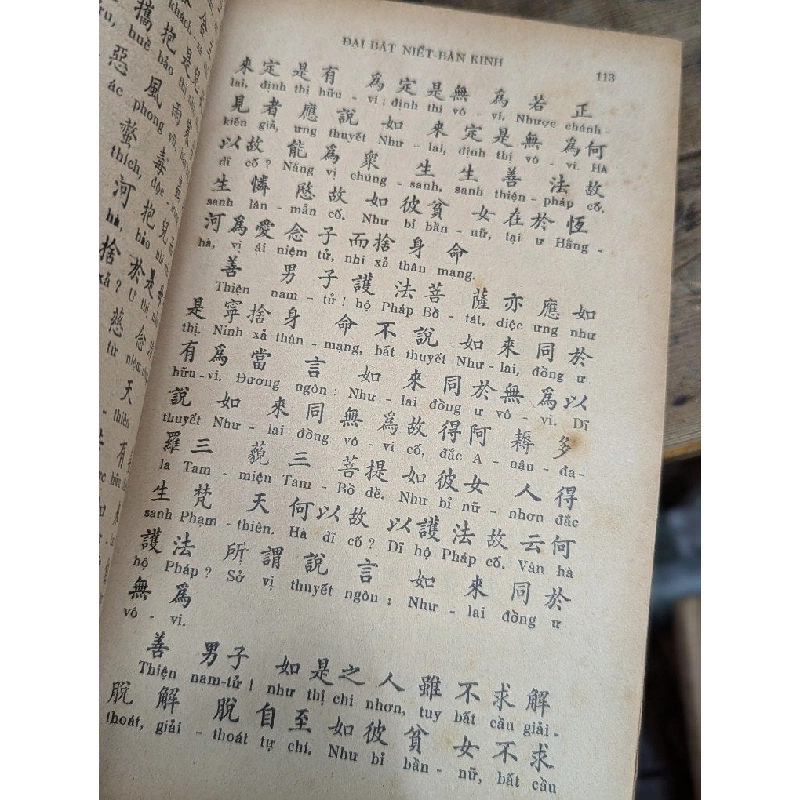 ĐẠI BÁT NIẾT-BÀN KINH 113
來定是有為定是無為若正
lai, định thị hữu - vi; định thị vô - vi. Nhược chánh-
見者應說如來定是無為何
kiến giả, ưng thuyết Như - lai, định thị vô - vi. Hà
以故能為眾生生善法故
dĩ cố? Năng vị chúng - sanh, sanh thiện - pháp cố.
生憐愍故如彼貧女在於恆
sanh lân - mẫn cố. Như bỉ bần - nữ, tại ư Hằng-
河為愛念子而捨身命
hà, vị ái niệm tử, nhi xả thân mạng.
善男子護法菩薩亦應如
Thiện nam - tử! hộ Pháp Bồ - tát, diệc ưng như
是寧捨身命不說如來同於
thị. Ninh xả thân - mạng, bất thuyết Như - lai, đồng ư
有為當言如來同於無為以
hữu - vi. Đương ngôn: Như - lai đồng ư vô - vi. Dĩ
說如來同無為故得阿耨多
thuyết Như - lai đồng vô - vi cố, đắc A - nậu - đa-
羅三藐三菩提如彼女人得
la Tam - miệu Tam - Bồ đề. Như bỉ nữ - nhơn đắc
生梵天何以故以護法故云何
sanh Phạm - thiên. Hà dĩ cố? Dĩ hộ Pháp cố. Vân hà
護法所謂說言如來同於
hộ Pháp? Sở vị thuyết ngôn: Như - lai đồng ư
無為
vô - vi.
善男子如是之人雖不求解
Thiện nam-tử! như thị chi nhơn, tuy bất cầu giải-
脫解脫自至如彼貧女不求
thoát, giải - thoát tự chí. Như bỉ bần - nữ, bất cầu